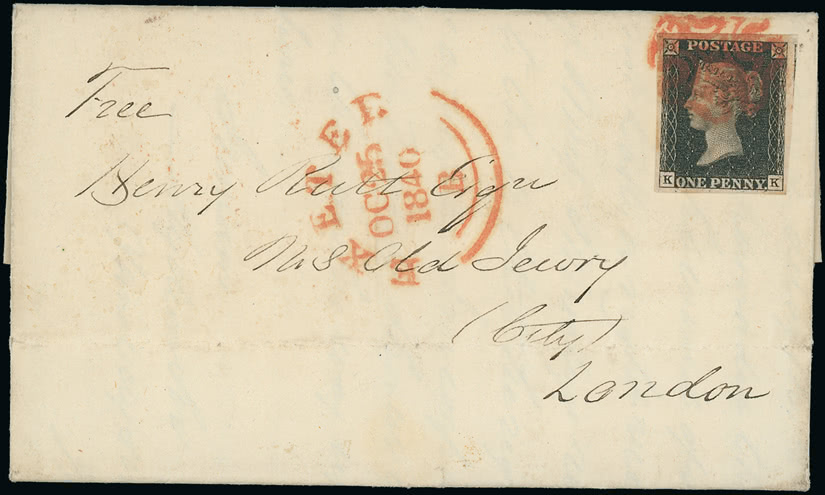 POSTAGE
K ONE PENNY K
Free
EXETER
OC 25
1840
E
Henry Rutt Esqr
No 8 Old Jewry
(City)
London